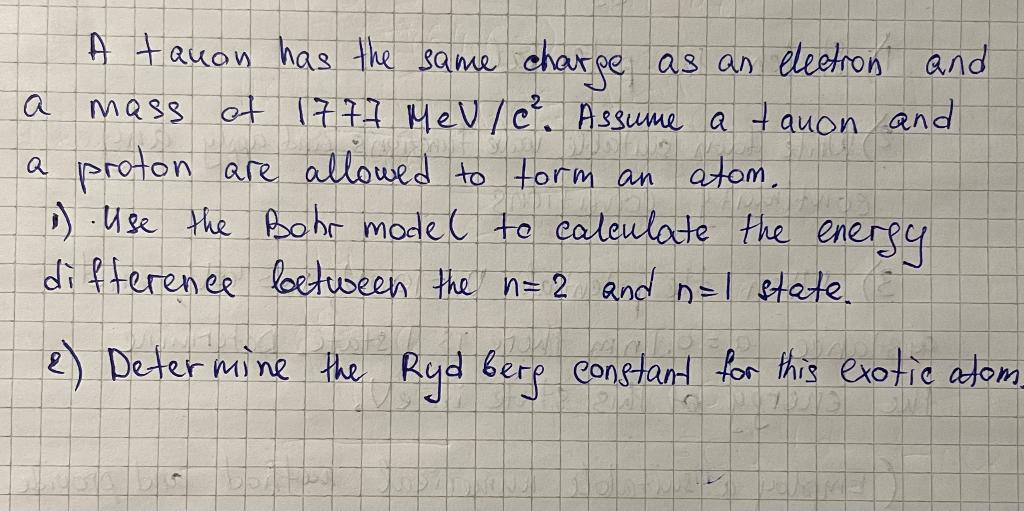 A tauon has the same charge as an electron and
a mass of 1777 MeV/c². Assume a tauon and
a proton are allowed to form an atom.
1) Use the Bohr model to calculate the energy
difference between the n=2 and n=1 state.
2) Determine the Rydberg constant for this exotic atom.